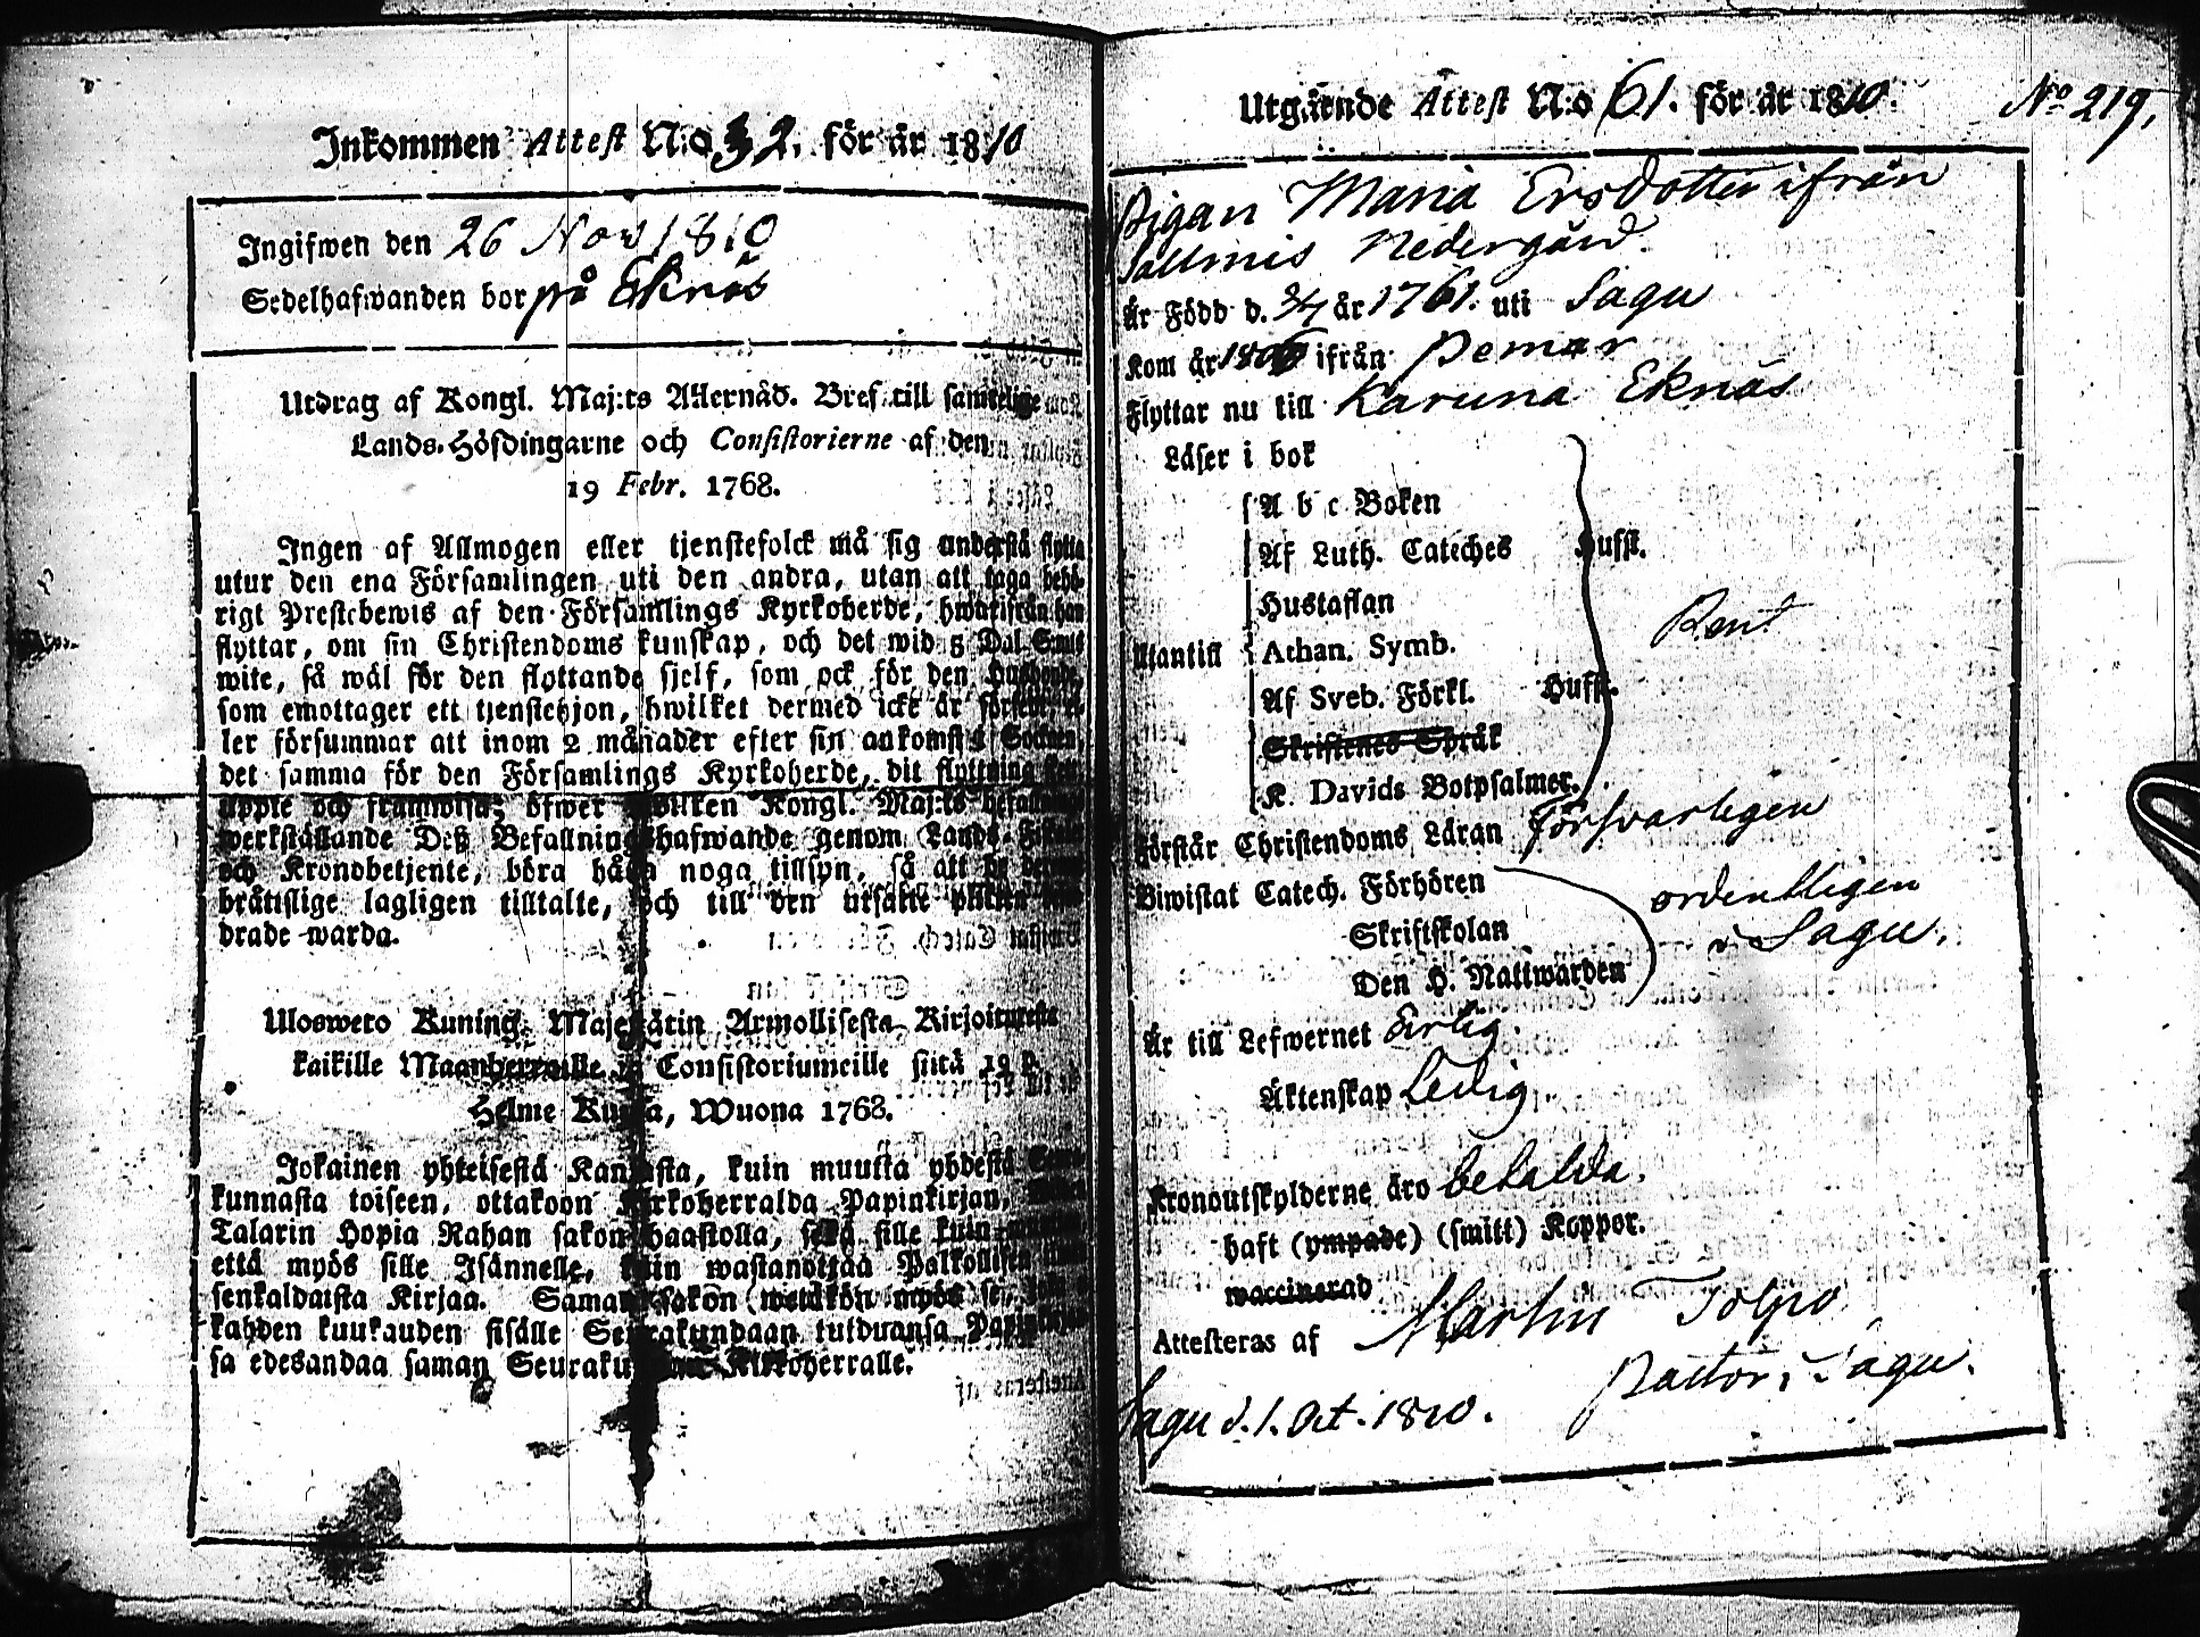 Inkommen Attest N:o 32. för år 1810
Ingifwen den 26 Nov 1810
Sedelhafwanden bor på Eknäs
Utdrag af Kongl. Maj:ts Allernåd. Bref till samtelige
Lands-Höfdingarne och Consistorierne af den
19 Febr. 1768.
Ingen af Allmogen eller tjenstefolck må sig understå flytta
utur den ena Församlingen uti den andra, utan att taga behö-
rigt Prestebewis af den Församlings Kyrkoherde, hwarifrån han
flyttar, om sin Christendoms kunskap, och det wid 5 Dal. S:mts
wite, så wäl för den flyttande sjelf, som ock för den Husbonde,
som emottager ett tjenstehjon, hwilket dermed icke är försedt, el-
ler försummar att inom 2 månader efter sin ankomst i Socknen,
det samma för den Församlings Kyrkoherde, dit flyttning sker,
uppte och framwisa; öfwer hwilken Kongl. Maj:ts befallnings
werkställande Deß Befallningshafwande genom Lands-Fiskaler
och Kronobetjente, böra hålla noga tillsyn, så att de dermot
brätslige lagligen tilltalte, och till den utsatte plikten
drade warda.
Ulosweto Kuning. Majestätin Armollisesta Kirjoituxesta
kaikille Maanherroille ja Consistoriumeille siitä 19 p.
Helme Kuussa, Wuona 1768.
Jokainen yhteisestä Kansasta, kuin muutta yhdestä Seura-
kunnasta toiseen, ottakoon Kirkoherralda Papinkirjan,
Talarin Hopia Rahan sakon haastolla, sekä sille kuin
että myös sille Isännelle, kuin wastanottaa Palkollisen
senkaldaista Kirjaa. Saman sakon wetäkön myös se,
kahden kuukauden sisälle Seurakundaan tulduansa Papinkirjan-
sa edesandaa saman Seurakunnan Kirkoherralle.
Utgående Attest N:o 61. för år 1810. No 219.
Pigan Maria Ersdotter ifrån
Sallmis Nedergård.
Är Född d. 3/7 år 1761. uti Sagu
Kom år 1806 ifrån Pemar
Flyttar nu till Karuna Eknäs
Läser i bok
A b c Boken
Af Luth. Cateches Hufst.
Hustaflan
Utantill Athan. Symb. Rent
Af Sveb. Förkl. Hufst.
Skriftenes Språk
K. Davids Botpsalmer.
Förstår Christendoms Läran försvarligen
Biwistat Catech. Förhören ordentligen
Skriftskolan i Sagu.
Den H. Nattwarden
Är till Lefwernet Ärlig.
Äktenskap Ledig
Kronoutskylderne äro betalda.
haft (ympade) (smitt) Koppor.
waccinerad
Attesteras af Martin Tolpo
Pastor i Sagu.
Sagu d. 1. Oct. 1810.